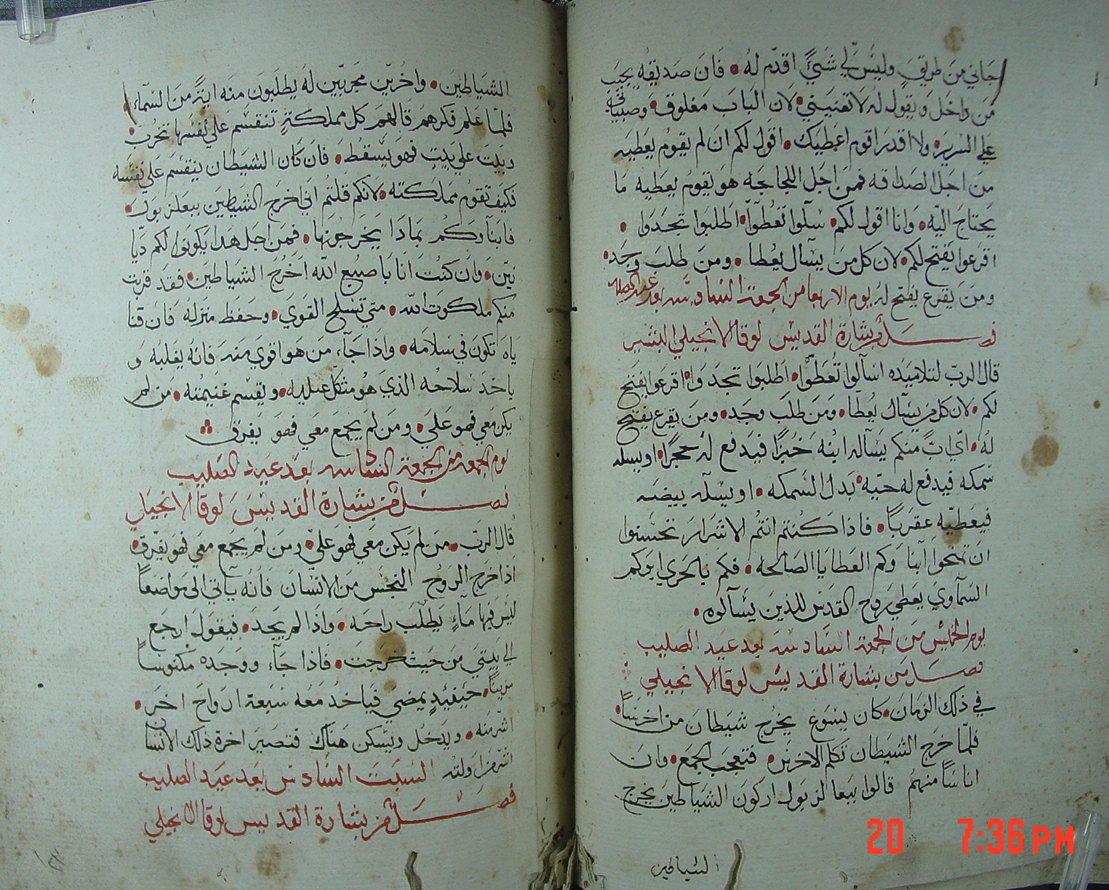 جاني من طريق وليس لي شيً اقدم له • فان صديقه يجيب
من داخل ويقول له لا تعنيني • لان الباب مغلوق • وصبياني
علي السرير • ولا اقدر اقوم اعطيك • اقول لكم ان لم يقوم يعطيه
من اجل الصداقه فمن اجل اللجاجه هو يقوم يعطيه ما
يحتاج اليه • وانا اقول لكم • سلوا تعطوا • اطلبوا تجدوا •
اقرعوا يفتح لكم • لان كل من يسال يعطا • ومن طلب وجد •
ومن يقرع يفتح له يوم الاربعا من الجمعة السادسه بعد عيد الصليب
فصل من بشارة القديس لوقا الانجيلي البشير
قال الرب لتلاميذه اسالوا تعطوا • اطلبوا تجدوا • اقرعوا يفتح
لكم • لان كل من يسال يعطا • ومن طلب وجد • ومن يقرع يفتح
له • اي اب منكم يساله ابنه خبزا فيدفع له حجرا • او يسله
سمكه فيدفع له حيه بدل السمكه • او يسله بيضه
فيعطيه عقربا • فاذا كنتم انتم الاشرار تحسنوا
ان تمنحوا ابناوكم العطايا الصالحه • فكم بالحري ابوكم
السماوي يعطي روح القدس للذين يسالوه •
يوم الخميس من الجمعة السادسه بعد عيد الصليب
فصل من بشارة القديس لوقا الانجيلي
في ذلك الزمان • كان يسوع يخرج شيطان من اخرس •
فلما خرج الشيطان تكلم الاخرس • فتعجب الجمع • وان
اناسا منهم قالوا ببعالزبول اركون الشياطين يخرج
الشياطين
الشياطين • واخرين مجربين له يطلبون منه اية من السماء •
فلما علم فكرهم قال لهم كل مملكة تنقسم علي نفسها تخرب
وبيت علي بيت فهو يسقط • فان كان الشيطان ينقسم علي نفسه
فكيف تقوم مملكته • لانكم قلتم اني اخرج الشياطين ببعلزبول •
فابناوكم بماذا يخرجونها • فمن اجل هذا يكونوا لكم ديا
نين • وان كنت انا باصبع الله اخرج الشياطين • فقد قربت
منكم ملكوت الله • متي تسلح القوي • وحفظ منزله فان قنا
ياه تكون في سلامه • واذا جاء من هو اقوي منه فانه يغلبه و
ياخد سلاحه الذي هو متكل عليه • ويقسم غنيمته • من لم
يكن معي فهو علي • ومن لم يجمع معي فهو يفرق
يوم الجمعه من الجمعة السادسه بعد عيد الصليب
فصل من بشارة القديس لوقا الانجيلي
قال الرب • من لم يكن معي فهو علي • ومن لم يجمع معي فهو يفرق •
اذا خرج الروح النجس من الانسان فانه ياتي الي مواضعا
ليس فيها ماء يطلب راحه • واذا لم يجد • فيقول ارجع
الي بيتي من حيث خرجت • فاذا جاء ووجده مكنوسا
مزينا • حينيذ يمضي فياخد معه سبعة ارواح اخر •
اشر منه • ويدخل ويسكن هناك فتصير اخرة ذلك الانسا
اشر من اولته السبت السادس بعد عيد الصليب
فصل من بشارة القديس لوقا الانجيلي
20 7:36 PM